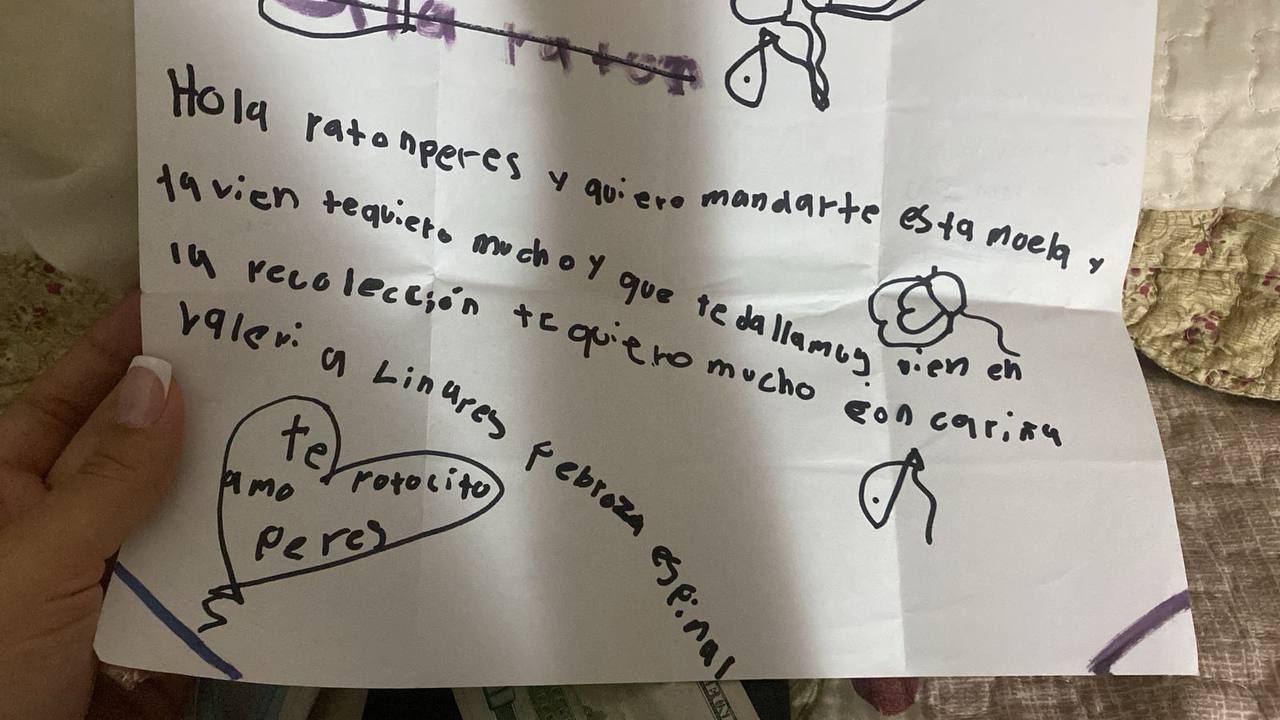 raton
Hola ratonperes y quiero mandarte esta moela y
tavien tequiero mucho y que te dallamuy vien en
la recolección te quiero mucho con cariña
valeria Linares Febroza espinal
te
amo rotocito
peres